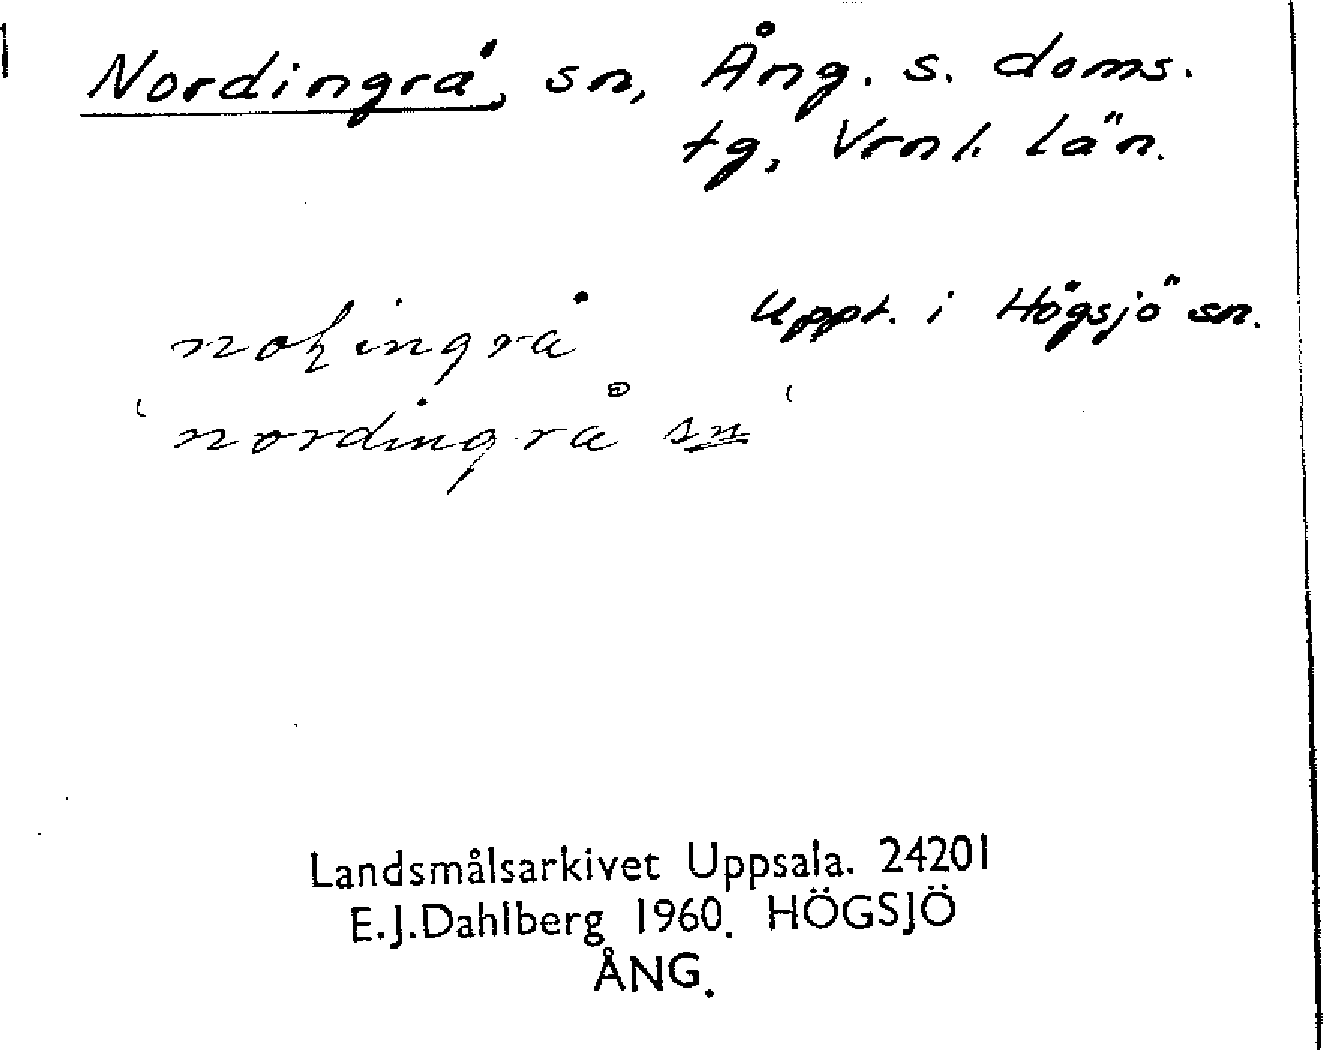 Nordingrå, sn, Ång. s. doms.
tg, Vrnl. län.
Uppt. i Högsjö sn.
nordingrå sn
Landsmålsarkivet Uppsala. 24201
E.J.Dahlberg 1960. HÖGSJÖ
ÅNG.